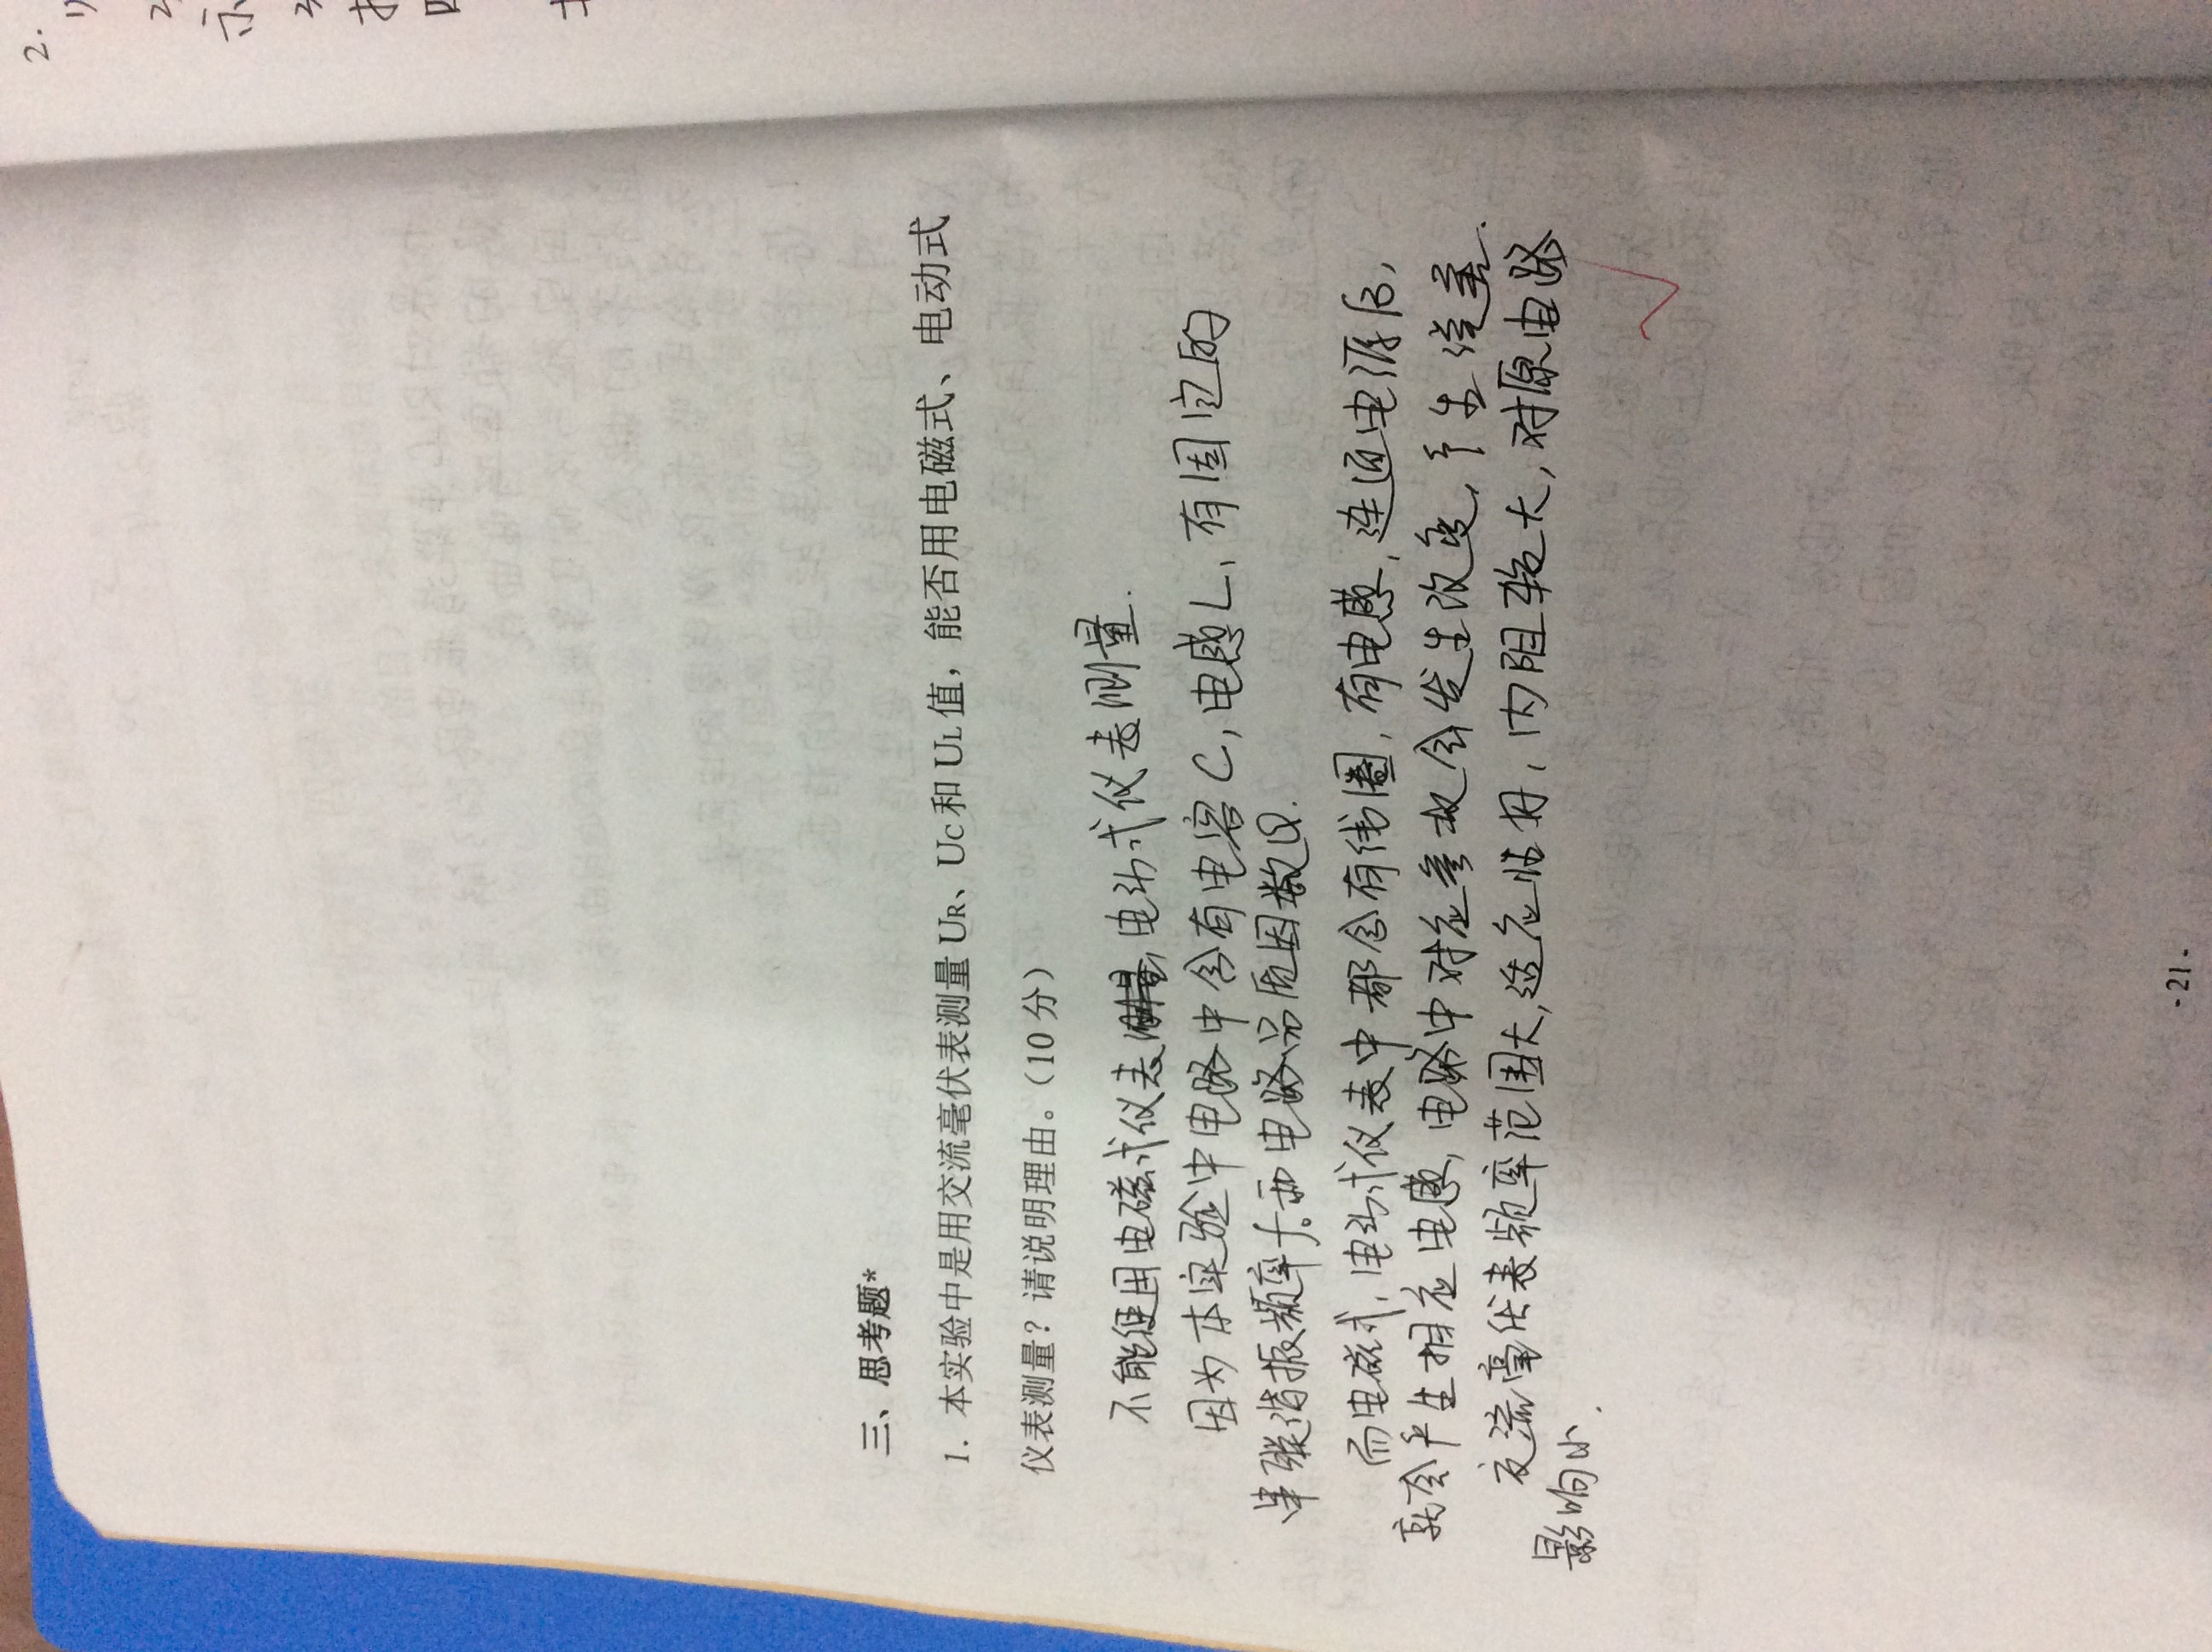 三、思考题*
1. 本实验中是用交流毫伏表测量UR、UC和UL值，能否用电磁式、电动式
仪表测量？请说明理由。（10分）
不能使用电磁式仪表，电动式仪表测量.
因为本实验中电路中含有电容C,电感L,有固定的
串联谐振频率f。和电路品质因数Q.
而电磁式,电动式仪表中都含有线圈,有电感,连通电源后,
就会产生相应电感,电路中对应参数会发生改变,产生误差.
交流毫伏表频率范围大,适应性好,内阻较大,对原电路
影响小.
·21·
2.